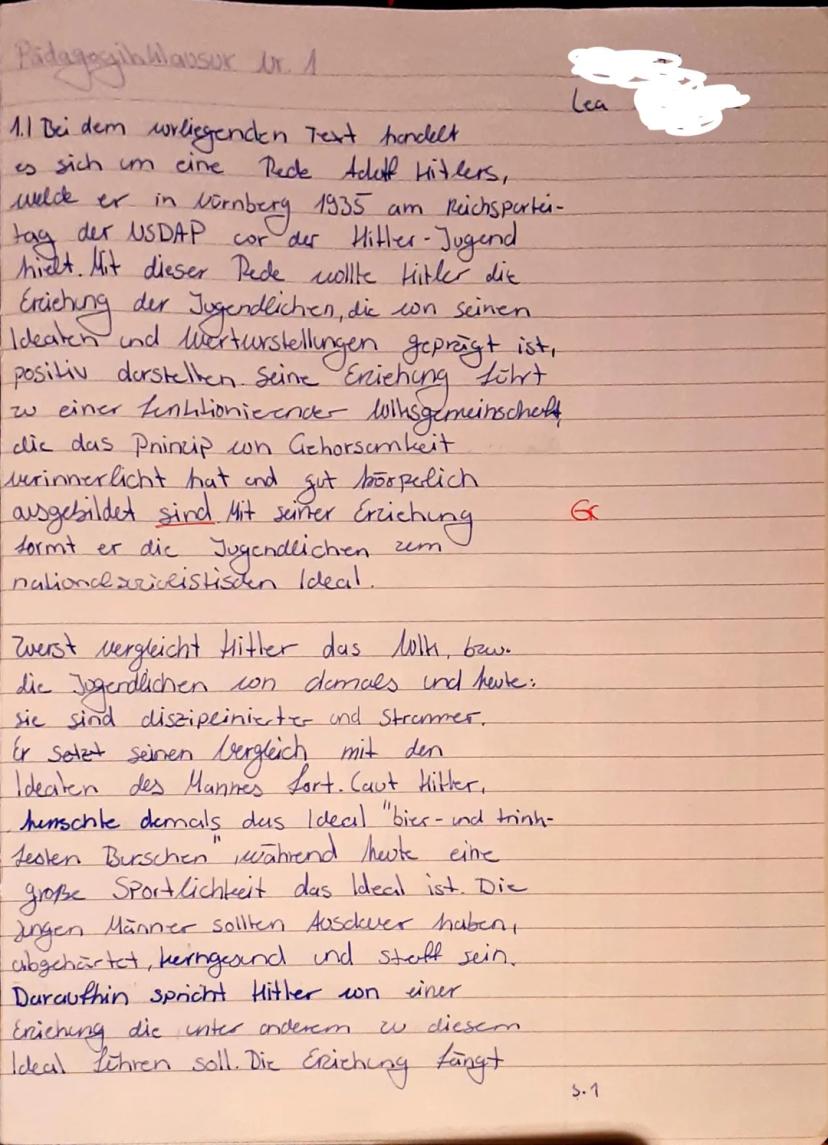 Pädagogikklausur Nr. 1
Lea
1.1 Bei dem vorliegenden Text handelt
es sich um eine Rede Adolf Hitlers,
welche er in Nürnberg 1935 am Reichspartei-
tag der NSDAP vor der Hitler-Jugend
hielt. Mit dieser Rede wollte Hitler die
Erziehung der Jugendlichen, die von seinen
Idealen und Wertvorstellungen geprägt ist,
positiv darstellen. Seine Erziehung führt
zu einer funktionierender Volksgemeinschaft,
die das Prinzip von Gehorsamkeit
verinnerlicht hat und gut körperlich
ausgebildet sind. Mit seiner Erziehung
Gr
formt er die Jugendlichen zum
nationalsozialistischen Ideal.
Zuerst vergleicht Hitler das Volk, bzw.
die Jugendlichen von damals und heute:
sie sind disziplinierter und strammer.
Er setzt seinen Vergleich mit den
Idealen des Mannes fort. Laut Hitler,
herrschte damals das Ideal "bier- und trink-
festen Burschen", während heute eine
große Sportlichkeit das Ideal ist. Die
jungen Männer sollten Ausdauer haben,
abgehärtet, kerngesund und straff sein.
Daraufhin spricht Hitler von einer
Erziehung die unter anderem zu diesem
Ideal führen soll. Die Erziehung fängt
S. 1